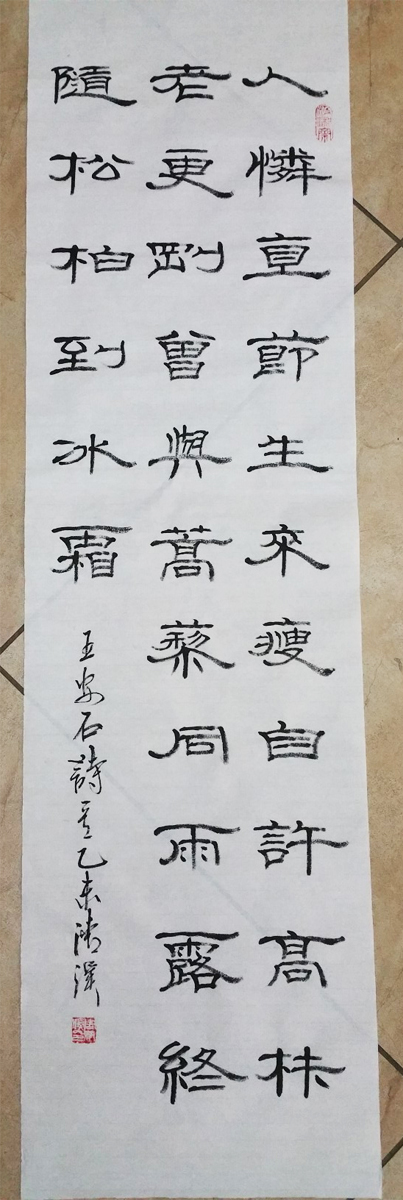 人憐直節生來瘦自許高材
老更剛曾與蒿藜同雨露終
隨松柏到冰霜
王安石詩 乙未